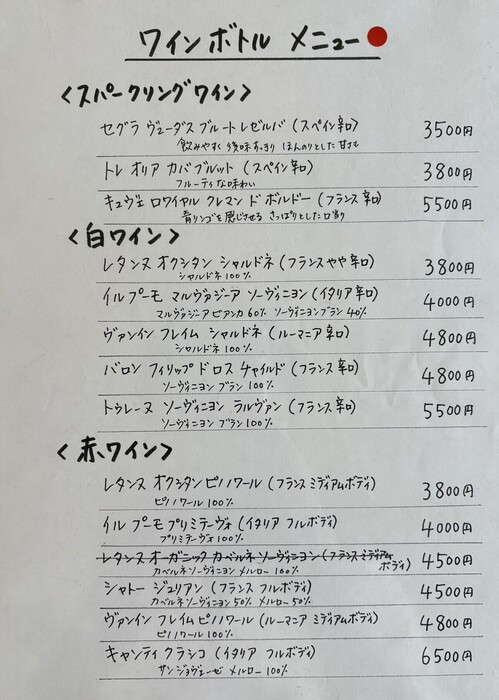 ワインボトル メニュー
<スパークリングワイン>
セグラ ヴューダス ブルートレゼルバ (スペイン辛口) 3500円
飲みやすく 後味すっきり ほんのりとした甘さも
トレ オリア カバ ブルット (スペイン辛口) 3800円
フルーティな味わい
キュヴェ ロワイヤル クレマン ド ボルドー (フランス辛口) 5500円
青リンゴを感じさせる さっぱりとした口当り
<白ワイン>
レタンヌ オクシタン シャルドネ (フランスやや辛口) 3800円
シャルドネ 100%
イル プーモ マルヴァジーア ソーヴィニヨン (イタリア辛口) 4000円
マルヴァジーア ビアンカ 60% ソーヴィニヨン ブラン 40%
ヴァンイン フレイム シャルドネ (ルーマニア 辛口) 4800円
シャルドネ 100%
バロン フィリップ ド ロス チャイルド (フランス 辛口) 4800円
ソーヴィニヨン ブラン 100%
トゥレーヌ ソーヴィニヨン ラルヴァン (フランス 辛口) 5500円
ソーヴィニヨン ブラン 100%
<赤ワイン>
レタンヌ オクシタン ピノノワール (フランス ミディアムボディ) 3800円
ピノノワール 100%
イル プーモ プリミテーヴォ (イタリア フルボディ) 4000円
プリミテーヴォ 100%
レタンヌ オーガニック カベルネ ソーヴィニヨン (フランス ミディアムボディ) 4500円
カベルネソーヴィニヨン メルロー 100%
シャトー ジュリアン (フランス フルボディ) 4500円
カベルネソーヴィニヨン 50% メルロー 50%
ヴァンイン フレイム ピノノワール (ルーマニア ミディアムボディ) 4800円
ピノノワール 100%
キャンティ クラシコ (イタリア フルボディ) 6500円
サンジョヴェーゼ メルロー 100%